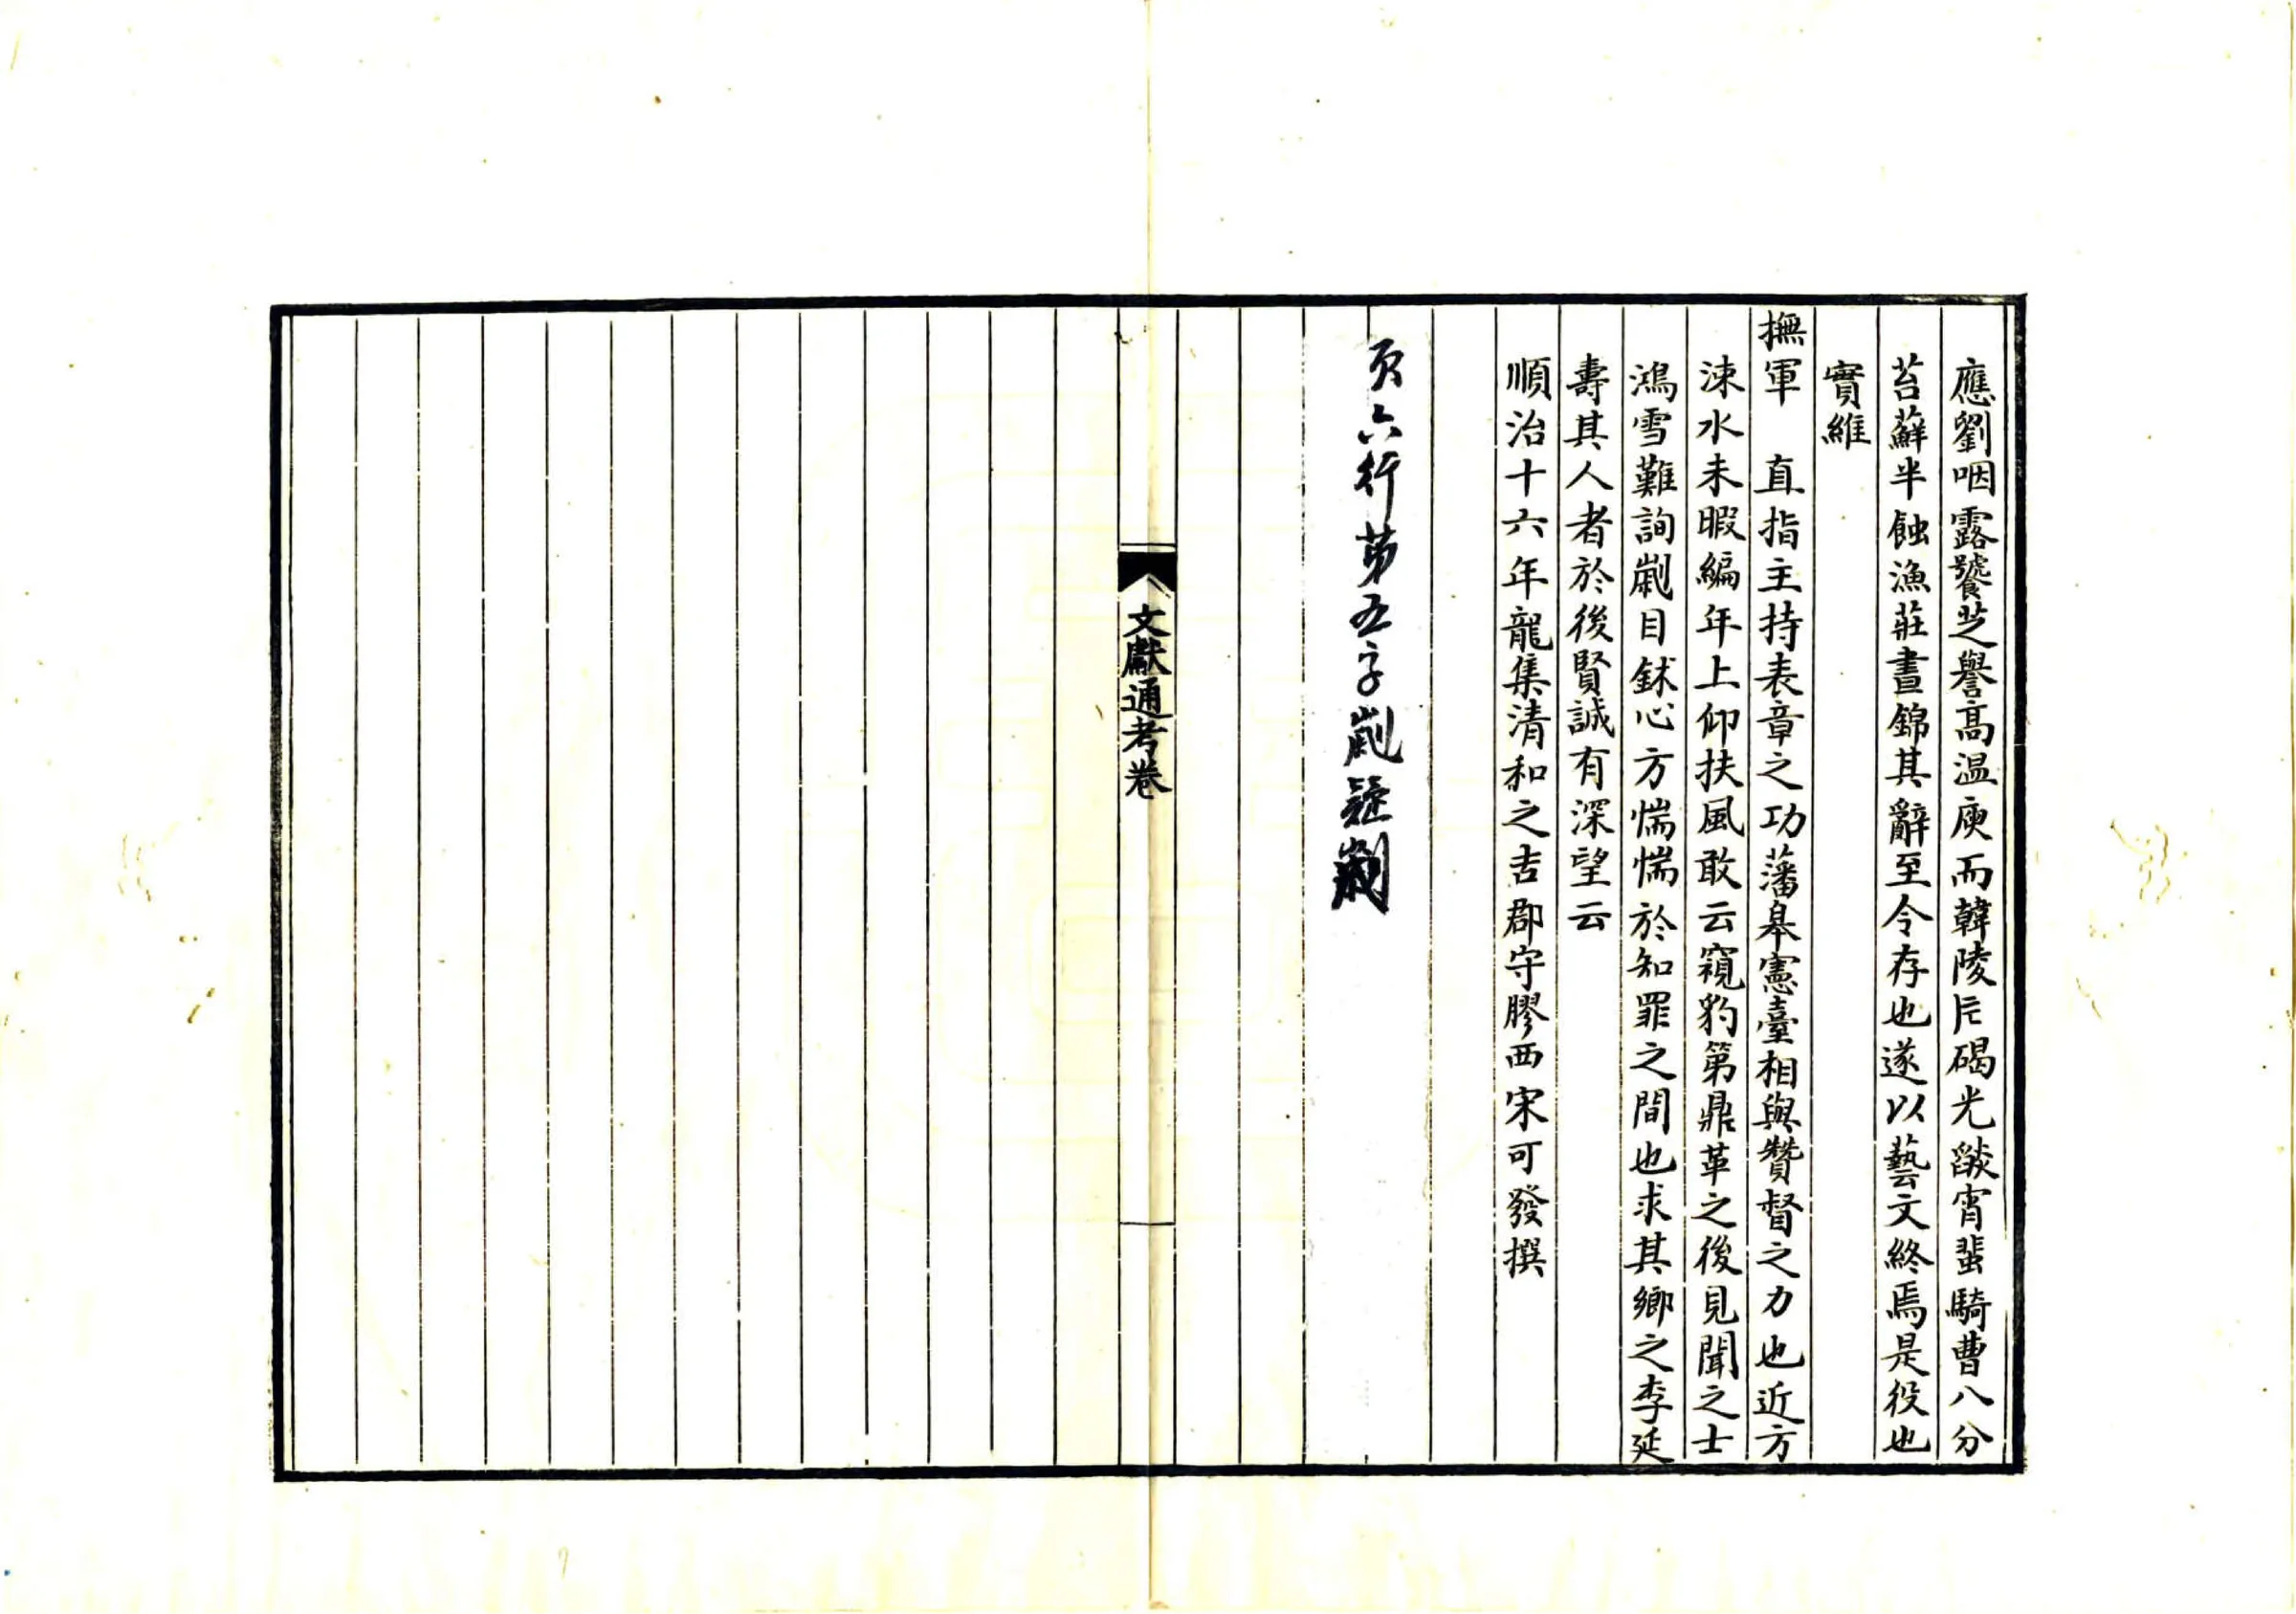 應劉咽露饕芝譽高溫庾而韓陵片碣光燄宵蜚騎曹八分
苔蘚半蝕漁莊晝錦其辭至今存也遂以藝文終焉是役也
實維
撫軍　直指主持表章之功藩臬憲臺相與贊督之力也近方
涑水未暇編年上仰扶風敢云窺豹第鼎革之後見聞之士
鴻雪難詢剡目鉥心方惴惴於知罪之間也求其鄉之李延
壽其人者於後賢誠有深望云
順治十六年龍集清和之吉郡守膠西宋可發撰
頁六行第五字 疑
文獻通考卷